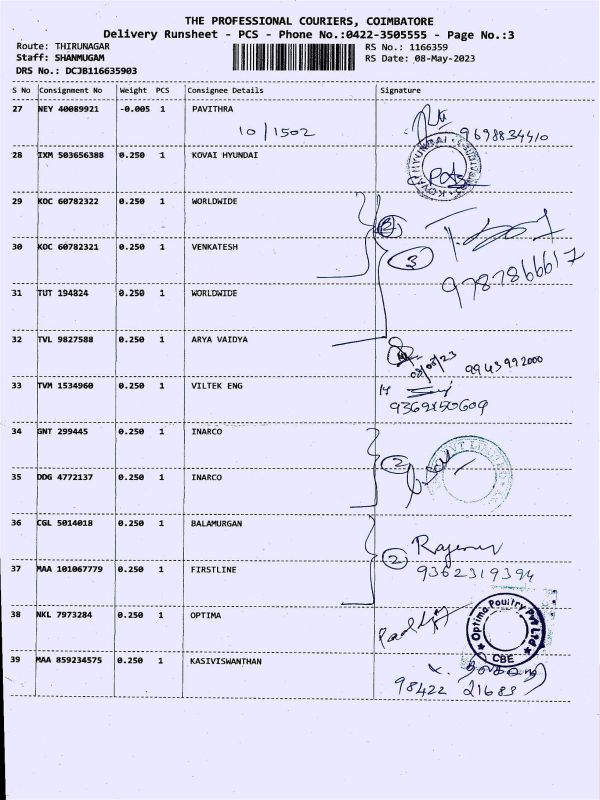 THE PROFESSIONAL COURIERS, COIMBATORE
Delivery Runsheet - PCS - Phone No.:0422-3505555 - Page No.:3
Route: THIRUNAGAR RS No.: 1166359
Staff: SHANMUGAM RS Date: 08-May-2023
DRS No.: DCJB116635903
S No Consignment No Weight PCS Consignee Details Signature
27 NEY 40089921 -0.005 1 PAVITHRA
10/1502 9698834410
28 IXM 503656388 0.250 1 KOVAI HYUNDAI
KOVAI HYUNDAI
29 KOC 60782322 0.250 1 WORLDWIDE
30 KOC 60782321 0.250 1 VENKATESH
3
9787866617
31 TUT 194824 0.250 1 WORLDWIDE
32 TVL 9827588 0.250 1 ARYA VAIDYA
08/05/23 9943992000
33 TVM 1534960 0.250 1 VILTEK ENG
34 GNT 299445 0.250 1 INARCO
2
35 DDG 4772137 0.250 1 INARCO
36 CGL 5014018 0.250 1 BALAMURGAN
2
37 MAA 101067779 0.250 1 FIRSTLINE
9362319394
38 NKL 7973284 0.250 1 OPTIMA
Optima Poultry Pvt Ltd
CBE
39 MAA 859234575 0.250 1 KASIVISWANTHAN
98422 21683